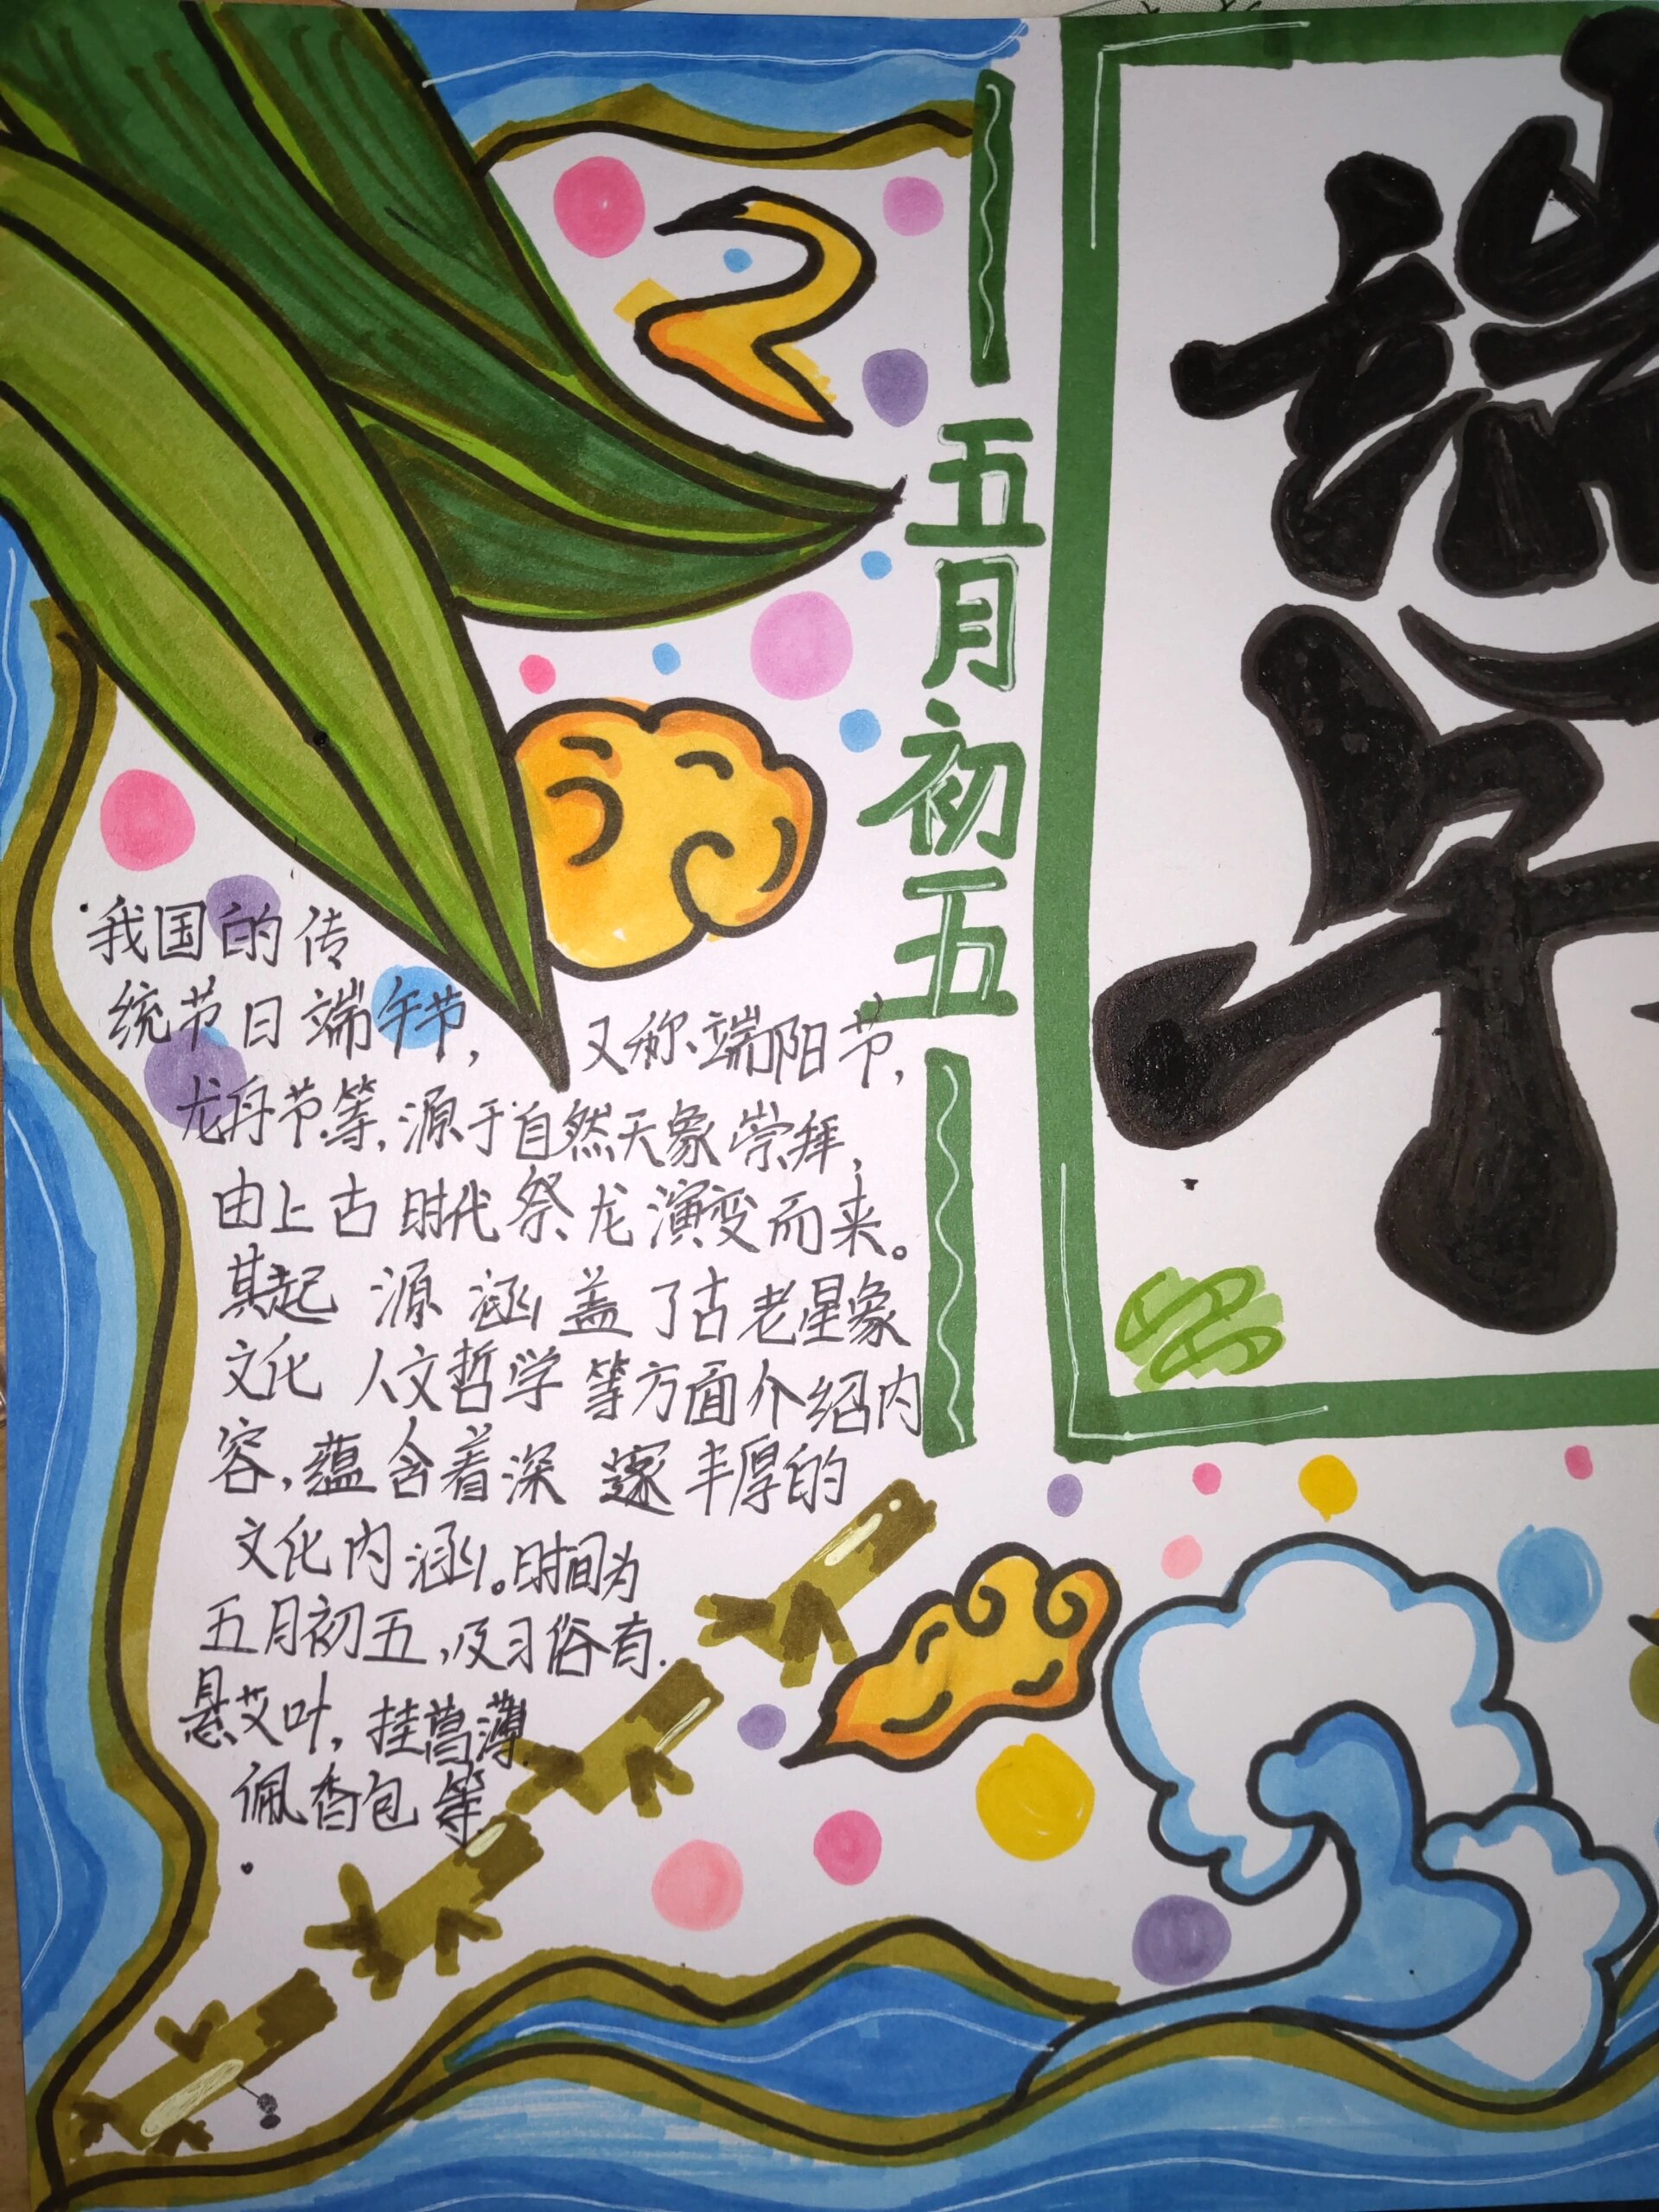 端午
五月初五
我国的传
统节日端午节，又称端阳节，
龙舟节等，源于自然天象崇拜，
由上古时代祭龙演变而来。
其起源涵盖了古老星象
文化人文哲学等方面介绍内
容，蕴含着深邃丰厚的
文化内涵。时间为
五月初五，及习俗有.
悬艾叶，挂菖薄.
佩香包等.